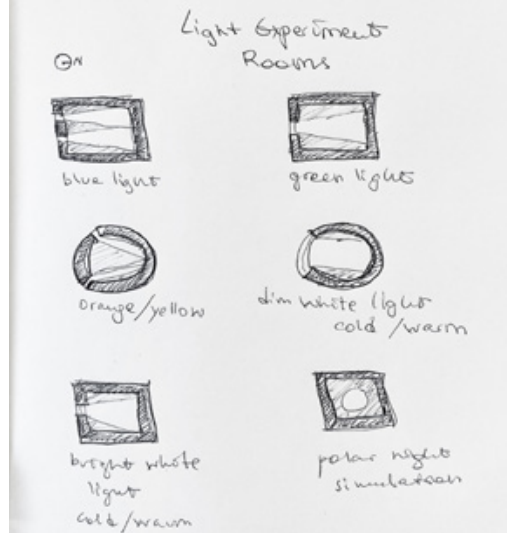 Light Experiment
Rooms
N
blue light
green light
orange/yellow
dim white light
cold/warm
bright white
light
cold/warm
polar night
simulation